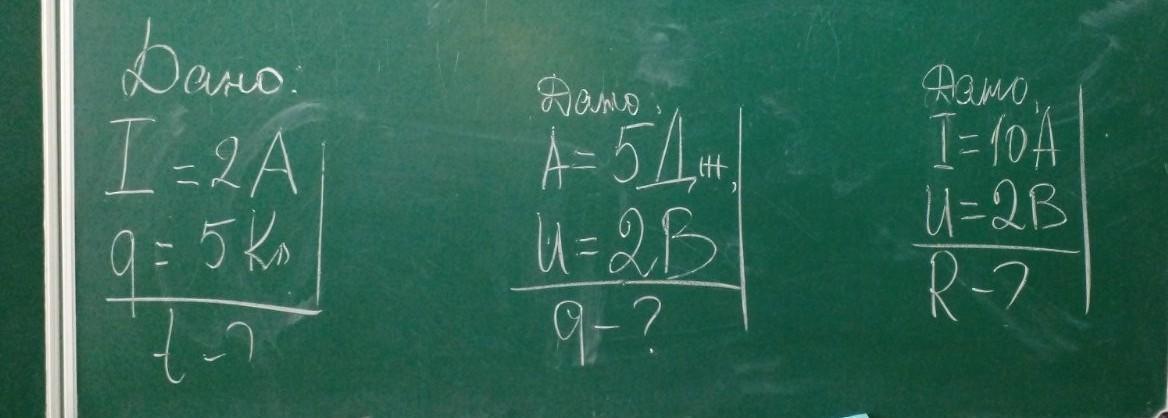 Дано:
I = 2A
q = 5 Кл
t - ?
Дано:
A = 5 Дж,
U = 2В
q - ?
Дано,
I = 10A
U = 2В
R - ?